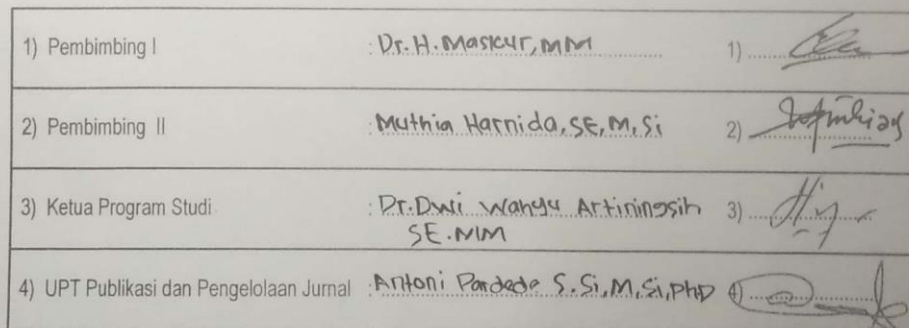 1) Pembimbing I : Dr. H. Maskur, MM 1)
2) Pembimbing II : Muthia Harnida, SE, M, Si 2)
3) Ketua Program Studi : Dr. Dwi Wahyu Artiningsih 3)
SE. MM
4) UPT Publikasi dan Pengelolaan Jurnal : Antoni Pardede S. Si, M, Si, PhD 4)